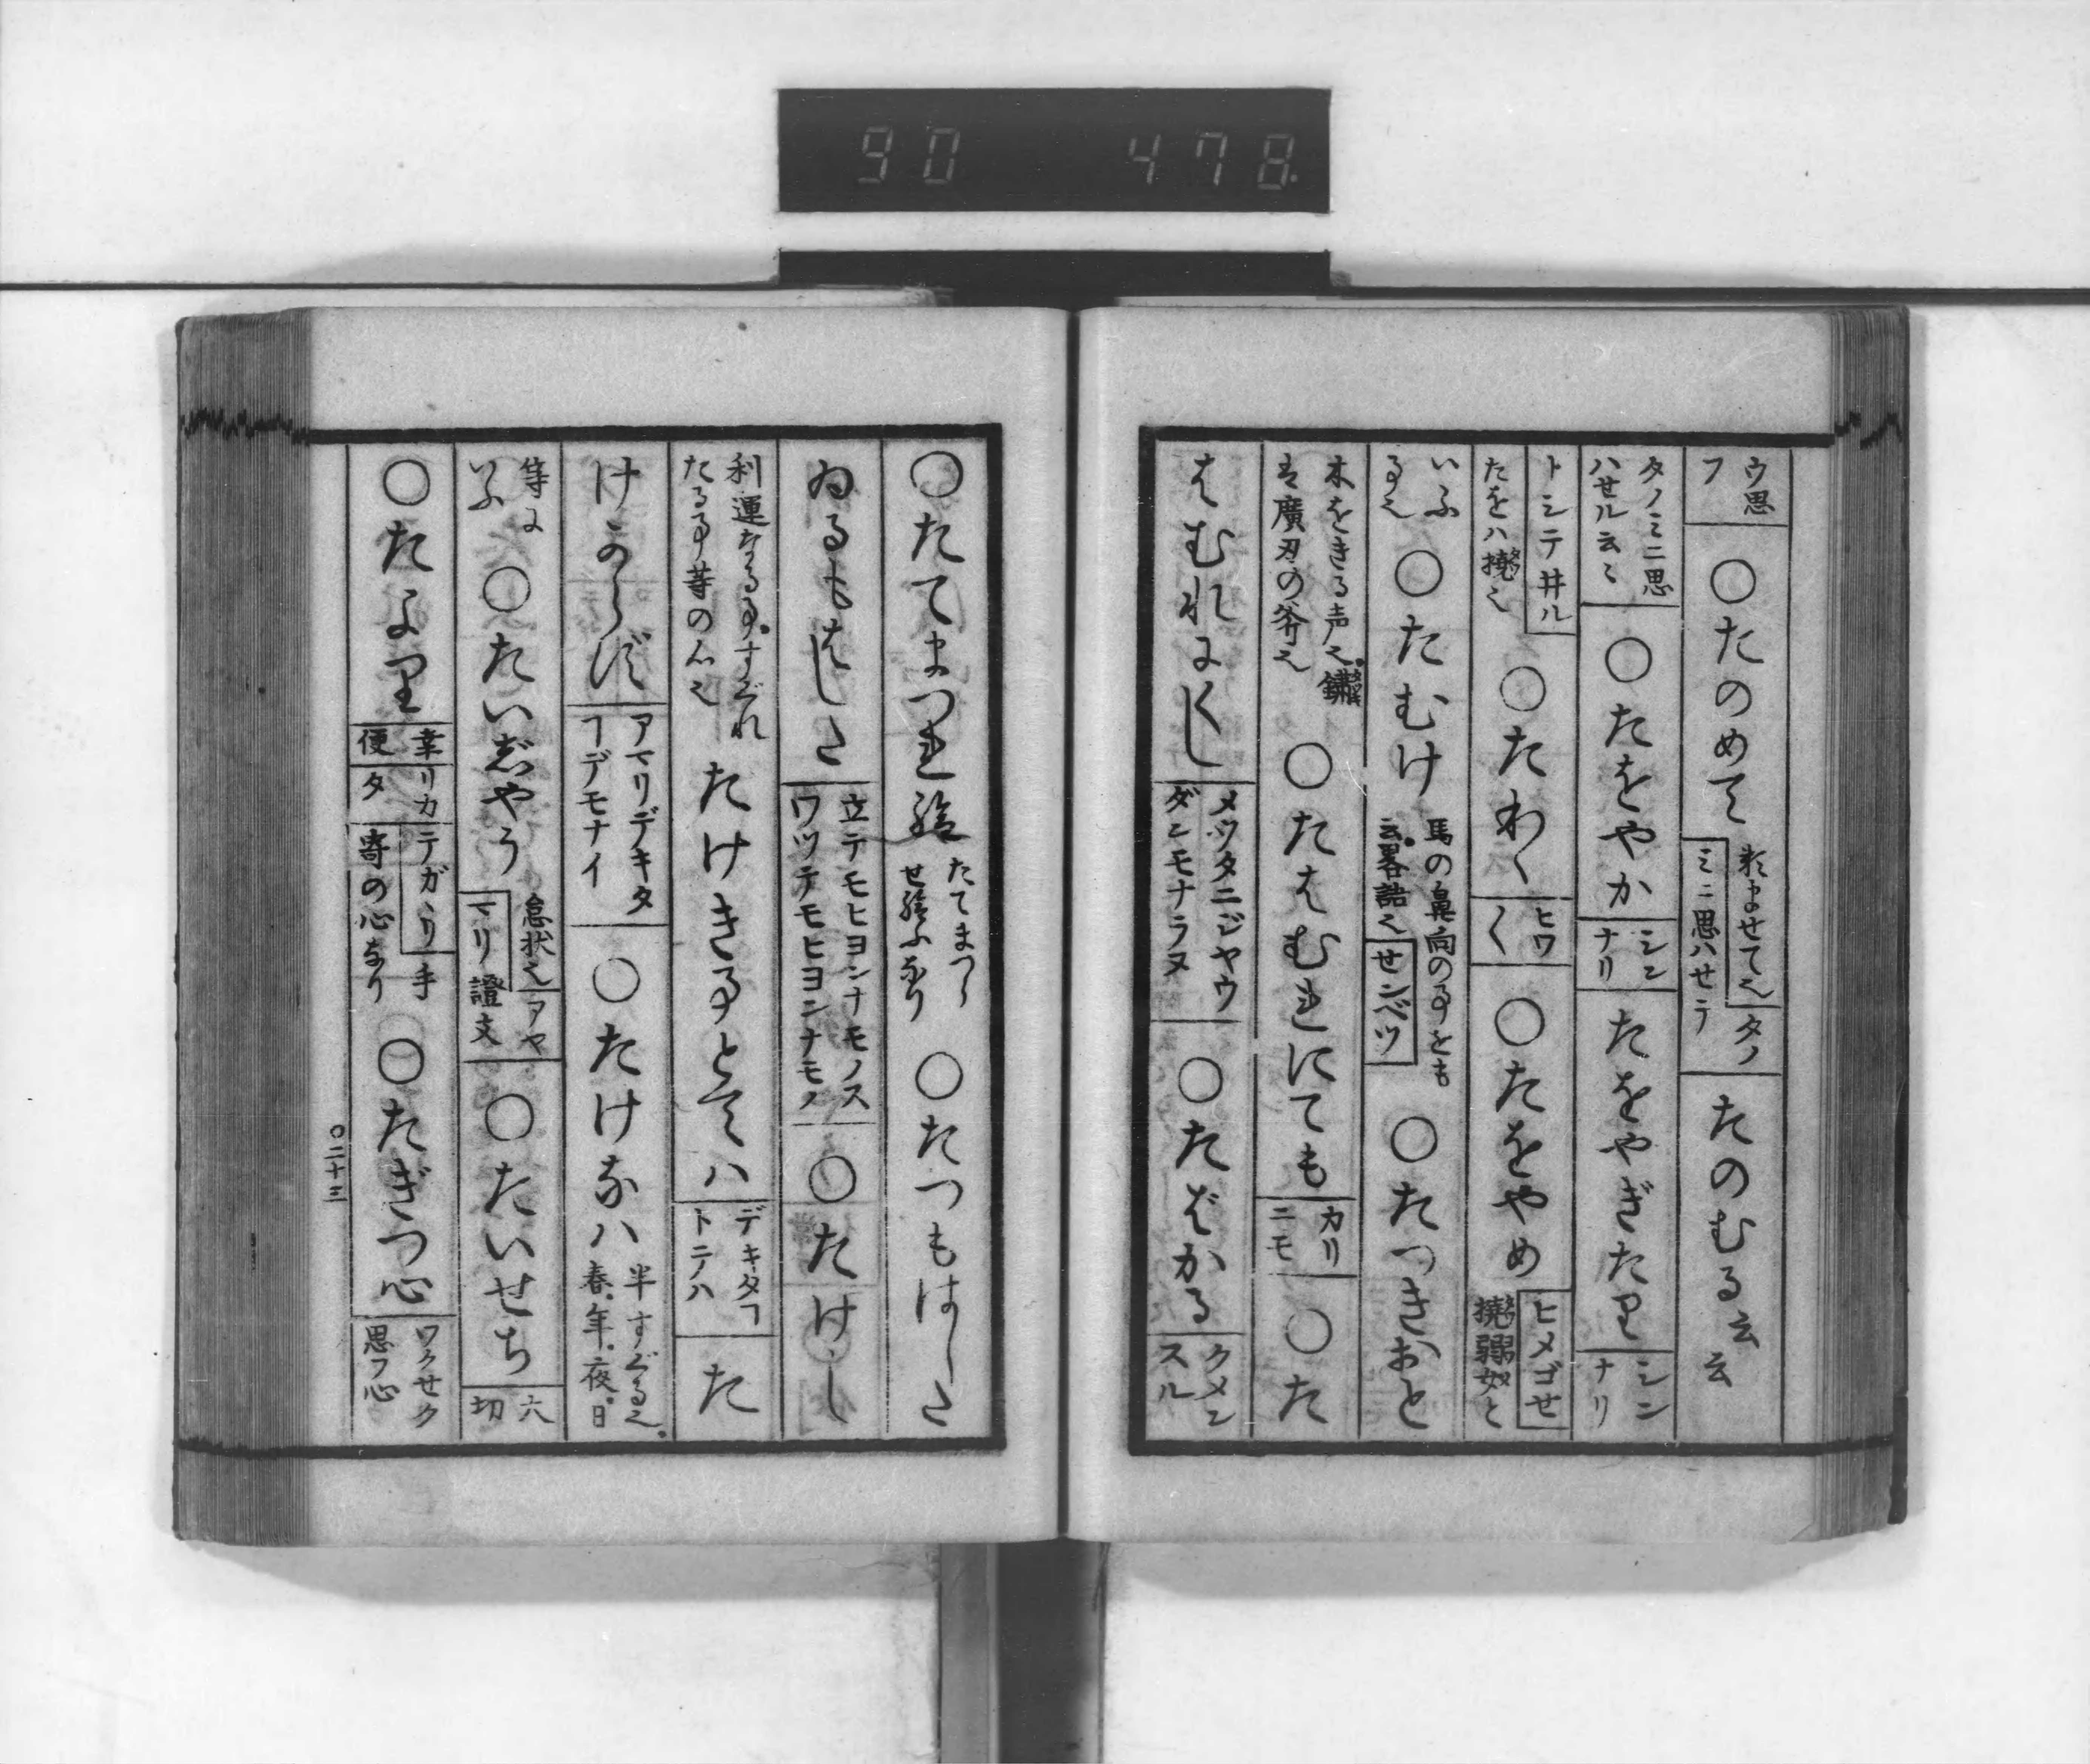 90 478
ウ思フ ○たのめて 頼ませて也 タノミニ思ハセテ たのむる云云
タノミニ思ハせル云〻 ○たをやか シンナリ たをやぎたり シンナリ
トシテ井ル たをハ撓〻 ○たわく ヒワ〱 ○たをやめ ヒメゴせ 撓弱女と
いふる也 ○たむけ 馬の鼻向の事をも云畧語也 せンベツ ○たつきおと
木をきる声也 鐇は廣刃の斧也 ○たはむれにても カリニモ ○た
はむれにくし メツタニジヤウダンモナラヌ ○たばかる クメンスル
○たてまつれ給 たてまつらせ給ふなり ○たつもはした
ゐるもはした 立テモヒヨンナモノスワツテモヒヨンナモノ ○たけし
利運なる事すぐれたる事等の心也 たけき事とてハ デキタヿトニハ た
けからず アマリデキタヿデモナイ ○たけなハ 半すぐる也 春年夜日
等にいふ ○たいぢやう 怠状也 アヤマリ證文 ○たいせち 大切
○たより 幸 便 リカタ テガヽリ 手寄の心なり ○たぎつ心 ワクせク思フ心
○二十三